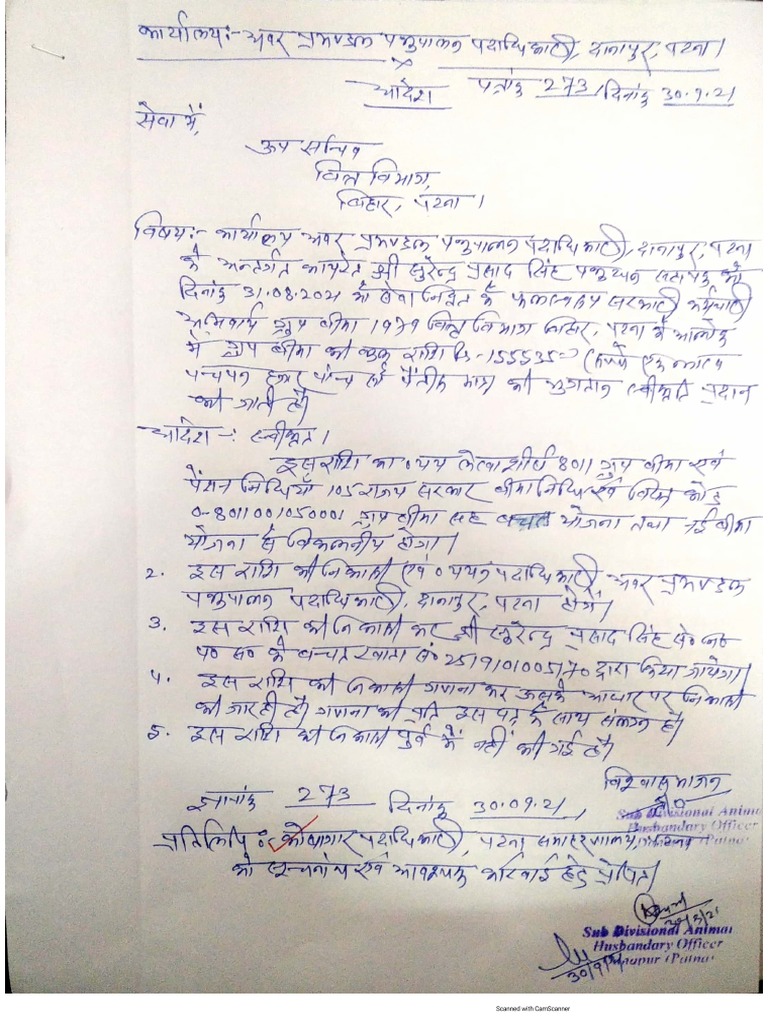 कार्यालय:- अवर प्रमण्डल पशुपालन पदाधिकारी, दानापुर, पटना।
आदेश पत्रांक 273 / दिनांक 30.9.21
सेवा में,
उप सचिव
वित्त विभाग,
बिहार, पटना।
विषय:- कार्यालय अवर प्रमण्डल पशुपालन पदाधिकारी, दानापुर, पटना
के अन्तर्गत कार्यरत श्री सुरेन्द्र प्रसाद सिंह पशुधन सहायक को
दिनांक 31.08.2021 को सेवा निवृत के फलस्वरूप सरकारी कर्मचारी
अनिवार्य ग्रुप बीमा 1979 वित्त विभाग बिहार, पटना के आलोक
में ग्रुप बीमा की कुल राशि रू.-155535=00 (रूपये एक लाख
पचपन हजार पाँच सौ पैंतीस मात्र की भुगतान स्वीकृति प्रदान
की जाती है।
आदेश -: स्वीकृत।
इस राशि का व्यय लेखा शीर्ष 8011 ग्रुप बीमा एवं
पेंशन निधियाँ 105 राज्य सरकार बीमा निधि एवं विपत्र कोड
0-8011001050001 ग्रुप बीमा सह बचत योजना तथा नई बीमा
योजना से विकलनीय होगा।
2. इस राशि की निकासी एवं व्ययन पदाधिकारी अवर प्रमण्डल
पशुपालन पदाधिकारी, दानापुर, पटना होंगे।
3. इस राशि की निकासी कर श्री सुरेन्द्र प्रसाद सिंह से०नि०
प० स० के बचत खाता सं० 2519101005170 द्वारा किया जायेगा।
4. इस राशि की निकासी गणना कर उसके आधार पर निकासी
की जा रही है। गणना की प्रति इस पत्र के साथ संलग्न है।
5. इस राशि की निकासी पूर्व में नहीं की गई है।
विश्वासभाजन
Sub Divisional Animal
Husbandary Officer
ज्ञापांक 273 दिनांक 30.09.21,
प्रतिलिपि:- कोषागार पदाधिकारी, पटना समाहरणालय, पटना
को सूचनार्थ एवं आवश्यक कार्रवाई हेतु प्रेषित।
Sub Divisional Animal
Husbandary Officer
Danapur (Patna)
30/9/21
Scanned with CamScanner